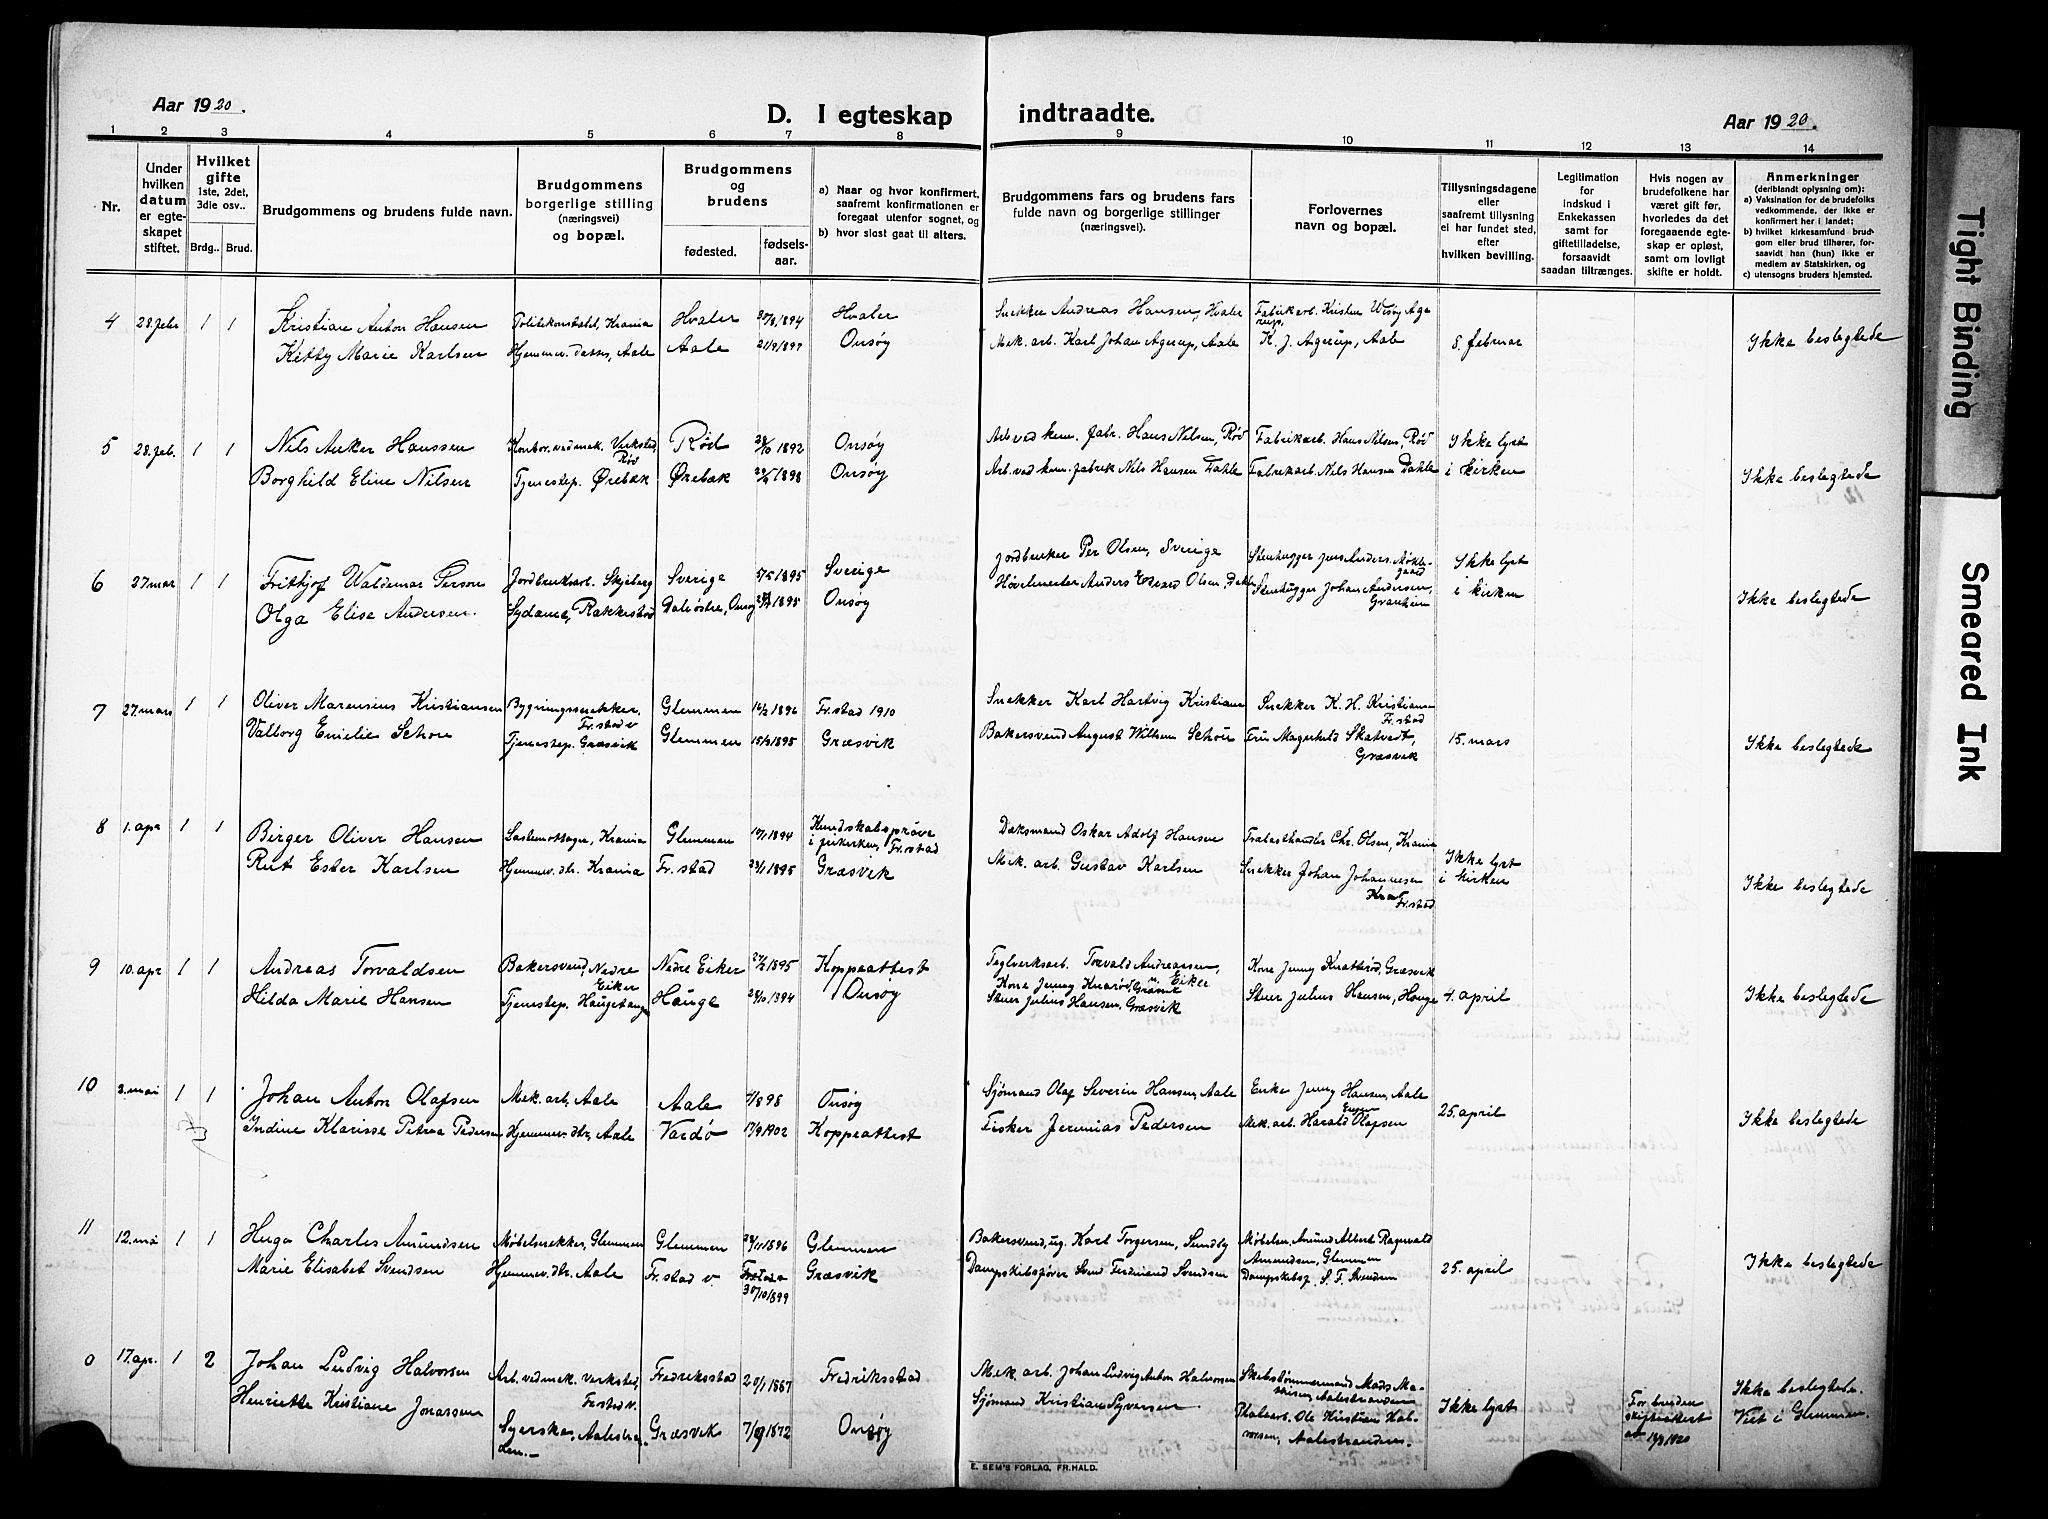 Aar 1920.
D. I egteskap indtraadte.
Aar 1920.
1 2 3 4 5 6 7 8 9 10 11 12 13 14
Nr.
Under hvilken datum er egteskapet stiftet.
Hvilket gifte 1ste, 2det, 3dle osv..
Brdg.. Brud.
Brudgommens og brudens fulde navn.
Brudgommens borgerlige stilling (næringsvei) og bopæl.
Brudgommens og brudens
fødested. fødsels-aar.
a) Naar og hvor konfirmert, saafremt konfirmationen er foregaat utenfor sognet, og
b) hvor sidst gaat til alters.
Brudgommens fars og brudens fars fulde navn og borgerlige stillinger (næringsvei).
Forlovernes navn og bopæl.
Tillysningsdagene eller saafremt tillysning ei har fundet sted, efter hvilken bevilling.
Legitimation for indskud i Enkekassen samt for giftetilladelse, forsaavidt saadan tiltrænges.
Hvis nogen av brudefolkene har været gift før, hvorledes da det foregaaende egteskap er opløst, samt om lovlig skifte er holdt.
Anmerkninger (deriblandt oplysning om):
a) Vaksination for de brudefolks vedkommende, der ikke er konfirmert her i landet;
b) hvilket kirkesamfund brudgom eller brud tilhører, forsaavidt han (hun) ikke er medlem av Statskirken, og
c) utensogns bruders hjemsted.
4 28. febr 1 1 Kristian Anton Hansen Politikonstabel, Krania Hvaler 1894 Hvaler Snekker Andreas Hansen, Hvaler Fabrikarb. Kristen Wisøy Agerup,
Ketty Marie Karlsen Hjemmev. datter, Aale Aale 21/9 1897 Onsøy Mek. arb. Karl Johan Agerup, Aale K. J. Agerup, Aale 8. februar Ikke beslegtede
5 28. feb. 1 1 Nils Anker Hanssen Kontor. ved mek. Verksted, Rød Rød 1892 Onsøy Arb. ved kem. fabr. Hans Nilsen, Rød Fabrikarb. Hans Nilsen, Rød Ikke lyst
Borghild Eline Nilsen Tjenestep. Ørebæk Ørebæk 1898 Onsøy Arb. ved kem. fabrik Nils Hansen Dahle Fabrikarb. Nils Hansen Dahle i kirken Ikke beslegtede
6 27 mar 1 1 Fritjof Waldemar Person Jordbruksarb. Skjeberg Sverige 1895 Sverige Jordbruker Per Olsen, Sverige Stenhugger Jens Anders. Møklegaard Ikke lyst
Olga Elise Andersen. Sydame, Rakkestad Dal østre, Onsøy 1895 Onsøy Høvelmester Anders Edvard Olsen, Dahle Stenhugger Johan Andersen, Granheim i kirken Ikke beslegtede
7 27. mars 1 1 Oliver Marensius Kristiansen Bygningssnekker, Fr.stad v Glemmen 1896 Fr.stad 1910 Snekker Karl Hartvig Kristians Snekker K. H. Kristians Fr.stad
Valborg Emelie Schou Tjenestep. Græsvik Glemmen 1895 Græsvik Bakersvend August Wilhem Schou Fru Magnhild Skatvedt, Græsvik 15. mars Ikke beslegtede
8 1. apr 1 1 Birger Oliver Hansen Krania Glemmen 1894 Kundskabsprøve i frikirken, Fr.stad Dæksmand Oskar Adolf Hansen Chr. Olsen, Krania
Rut Ester Karlsen Hjemmev. dtr. Krania Fr.stad 23/1 1895 Græsvik Mek. arb. Gustav Karlsen Snekker Johan Johannesen Fr.stad Ikke lyst i kirken Ikke beslegtede
9 10. apr 1 1 Andreas Torvaldsen Bakersvend, Nedre Eiker Nedre Eiker 1895 Koppeattest Teglverksarb. Torvald Andreassen, N. Eiker Kone Jenny Knatterød, Græsvik
Hilda Marie Hansen Tjenestep. Haugetangen Hauge 1894 Onsøy Kone Jenny Knarød, Græsvik Stuer Julius Hansen, Græsvik Stuer Julius Hansen, Hauge 4. april Ikke beslegtede
10 2. mai 1 1 Johan Anton Olafsen Mek. arb, Aale Aale 1898 Onsøy Sjømand Olaf Severin Hansen, Aale Enke Jenny Hansen, Aale
Indine Klarisse Petrea Pedersen Hjemmev. dtr, Aale Vardø 17/9 1902 Koppeattest Fisker Jeremias Pedersen Mek. arb. Harald Olafsen 25. april Ikke beslegtede
11 12. mai 1 1 Hugo Charles Amundsen Møbelsnekker, Glemmen Glemmen 1896 Glemmen Bakersvend, ug. Karl Torgersen, Sundby Møbelsn. Amund Albert Ragnvald Amundsen, Glemmen
Marie Elisabet Svendsen Hjemmev. dtr. Aale Fr.stad v 30/10 1899 Græsvik Dampskibsfører Svend Ferdinand Svendsen Dampskibsf. S. F. Svendsen 25. april Ikke beslegtede
0 17. apr. 1 2 Johan Ludvig Halvorsen Arb. ved mek. verksted, Fr.stad v. Fredriksstad 1867 Fredriksstad Mek. arb. Johan Ludvig Anton Halvorsen Skibstømmermand Mads Mathisen, Aalestranden
Henriette Kristiane Jonassen Syerske, Aalestranden.- Græsvik 1872 Onsøy Sjømand Kristian Syversen Ole Kristian Halvorsen, Aalestranden. Ikke lyst For bruden skifteattest av 1920 Ikke beslegtede. Viet i Glemmen.
E. SEM'S FORLAG, FR.HALD.
Tight Binding
Smeared Ink